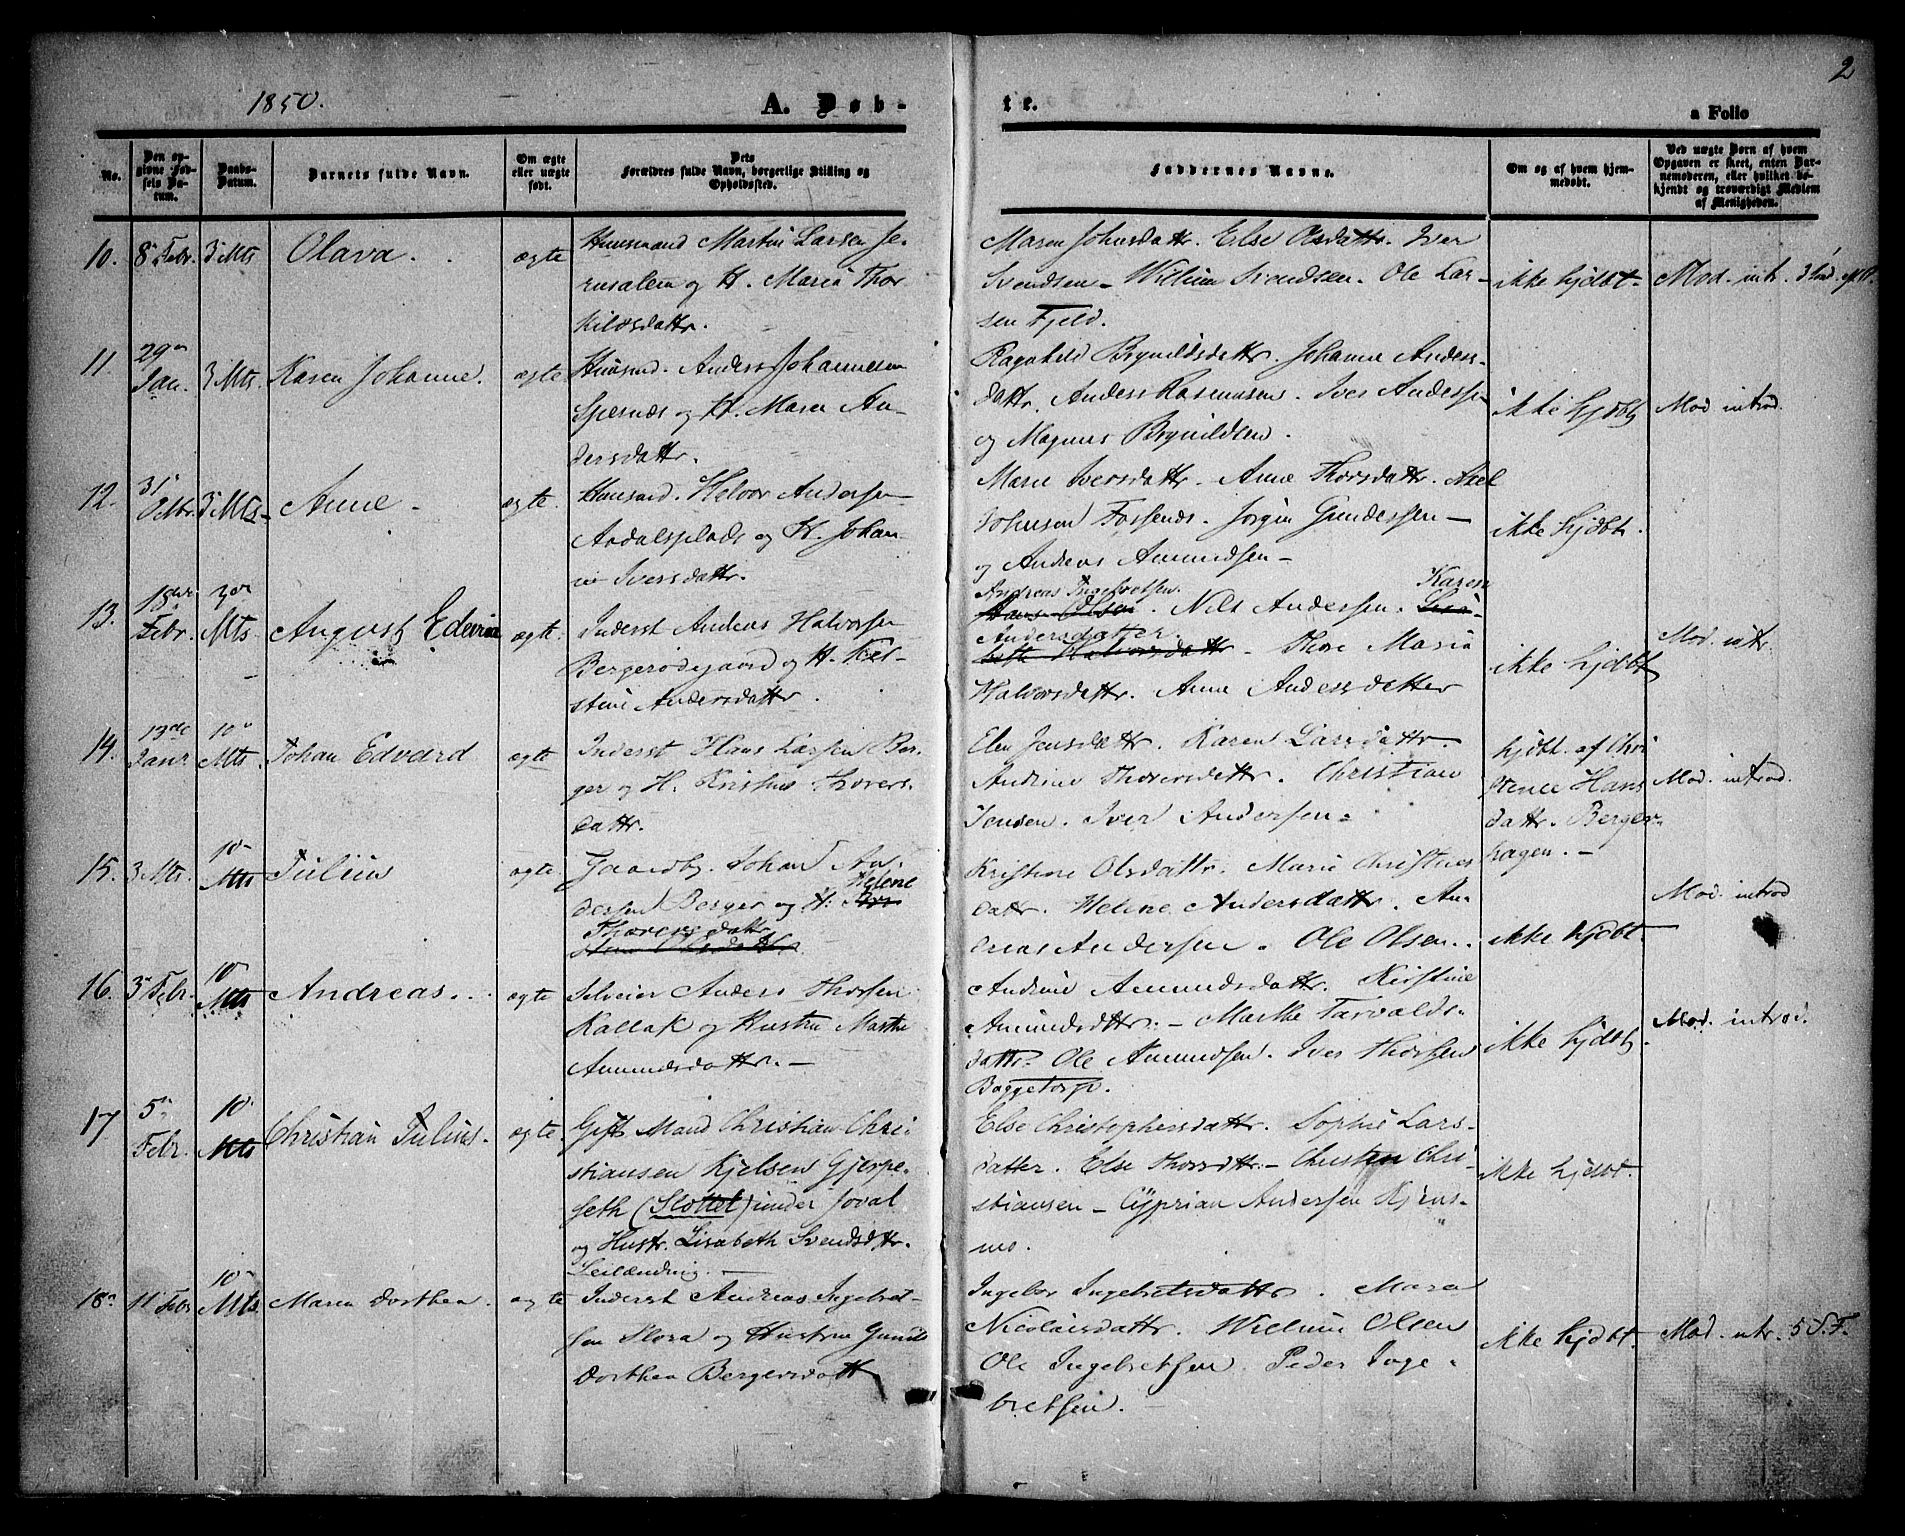 1850.
A. Døb-
te.
a Folio
2
No.
Den op-
givne Fød-
sels Da-
tum.
Daabs-
Datum.
Barnets fulde Navn.
Om ægte
eller uægte
født.
Dets
Forældres fulde Navn, borgerlige Stilling og
Opholdssted.
Faddernes Navne.
Om og af hvem hjem-
medøbt.
Ved uægte Børn af hvem
Opgaven er skeet, enten Bar-
nemoderen, eller hvilket be-
kjendt og troværdigt Medlem
af Menigheden.
10. 8 Febr. 3 Mts Olava. ægte
Huusmand Martin Larsen Je-
rusalem og H. Maria Thor
kildsdattr.
Maren Johnsdattr. Else Olsdattr. Iver
Svendsen - Willum Svendsen. Ole Lar-
sen Fjeld.
ikke hjdbt.
Mod. int.
11 29 Jan. 3 Mts. Karen Johanne. ægte
Huusmd. Anders Johannesen
Spernæs og H. Maren An-
dersdattr.
Ragnhild Brynildsdattr. Johanne Anders-
dattr. Anders Rasmussen. Iver Andersen
og Magnus Brynildsen.
ikke hjdbt
Mod introd.
12. 31 3 Mts- Anne. ægte.
Huusmd. Helvor Andersen
Aadalsplads og H. Johan
ne Iversdattr.
Maren Iversdattr. Anne Thorsdattr. Niel
Johnsen Fossends. Jørgen Gundersen -
og Andreas Amundsen -
ikke hjdbt.
13. 18 Febr. 3 Mts August Edevin ægte.
Inderst Andreas Halvorsen
Bergerødegaard og H. Ker-
stine Andersdattr.
Andreas Ingebretsen. Karen
Hans Olsen. Nils Andersen.
Andersdatter.
Halvorsdattr - Thore Maria
Halvorsdattr. Anne Andersdatter
ikke hjdbt
Mod. intr.
14. 13de Janr 10 Mts. Johan Edvard ægte
Inderst Hans Larsen Ber-
ger og H. Kristine Thovers-
dattr.
Elen Jensdattr. Karen Larsdattr.
Andrine Thoversdattr. Christian
Jensen. Iver Andersen.
hjdbt. af Chri
stence Hans
dattr. Berger-
hagen. -
Mod. introd.
15. 3 Mts. 10 Mts Julius ægte
Gaardbr. Johan An-
dersen Berger og H. Helene
Thoresdattr
Olsdattr.
Kristine Olsdattr. Marie Christens
dattr. Helene Andersdattr. An-
dreas Andersen. Ole Olsen.
ikke hjdbt.
Mod. introd
16. 3 Febr. 10 Mts Andreas. ægte
Selveier Anders Thorsen
Kallak og Hustru Marthe
Amundsdattr. -
Andrine Amundsdattr. Kirstine
Amundsdattr. - Marthe Tarvalds-
dattr. Ole Amundsen. Iver Thorsen
Baggetorp.
ikke hjdbt
Mod. introd.
17 5 Febr. 10 Mts Christian Julius. ægte.
Gift Mand Christian Chri-
stiansen Kjelsen Gjerpe-
seth (Slottet) under Joval
og Hustr. Lisabeth Svendsdttr.
Leilænding. -
Else Christophersdattr. Sophie Lars-
datter. Else Thorsdttr. - Christen Chri-
stiansen - Cyprian Andersen Kjens-
mo.
ikke hjdbt.
18 11 Febr 10 Mts Maren Dorthea. ægte
Inderst Andreas Ingebret-
sen Slora og Hustru Gunil
Dorthea Bergersdatt
Ingebor Ingebretsdattr. Maren
Nicolaisdattr. Willum Olsen
Ole Ingebretsen. Peder Inge-
bretsen.
ikke hjdbt.
Mod. intr. 5 S. F.